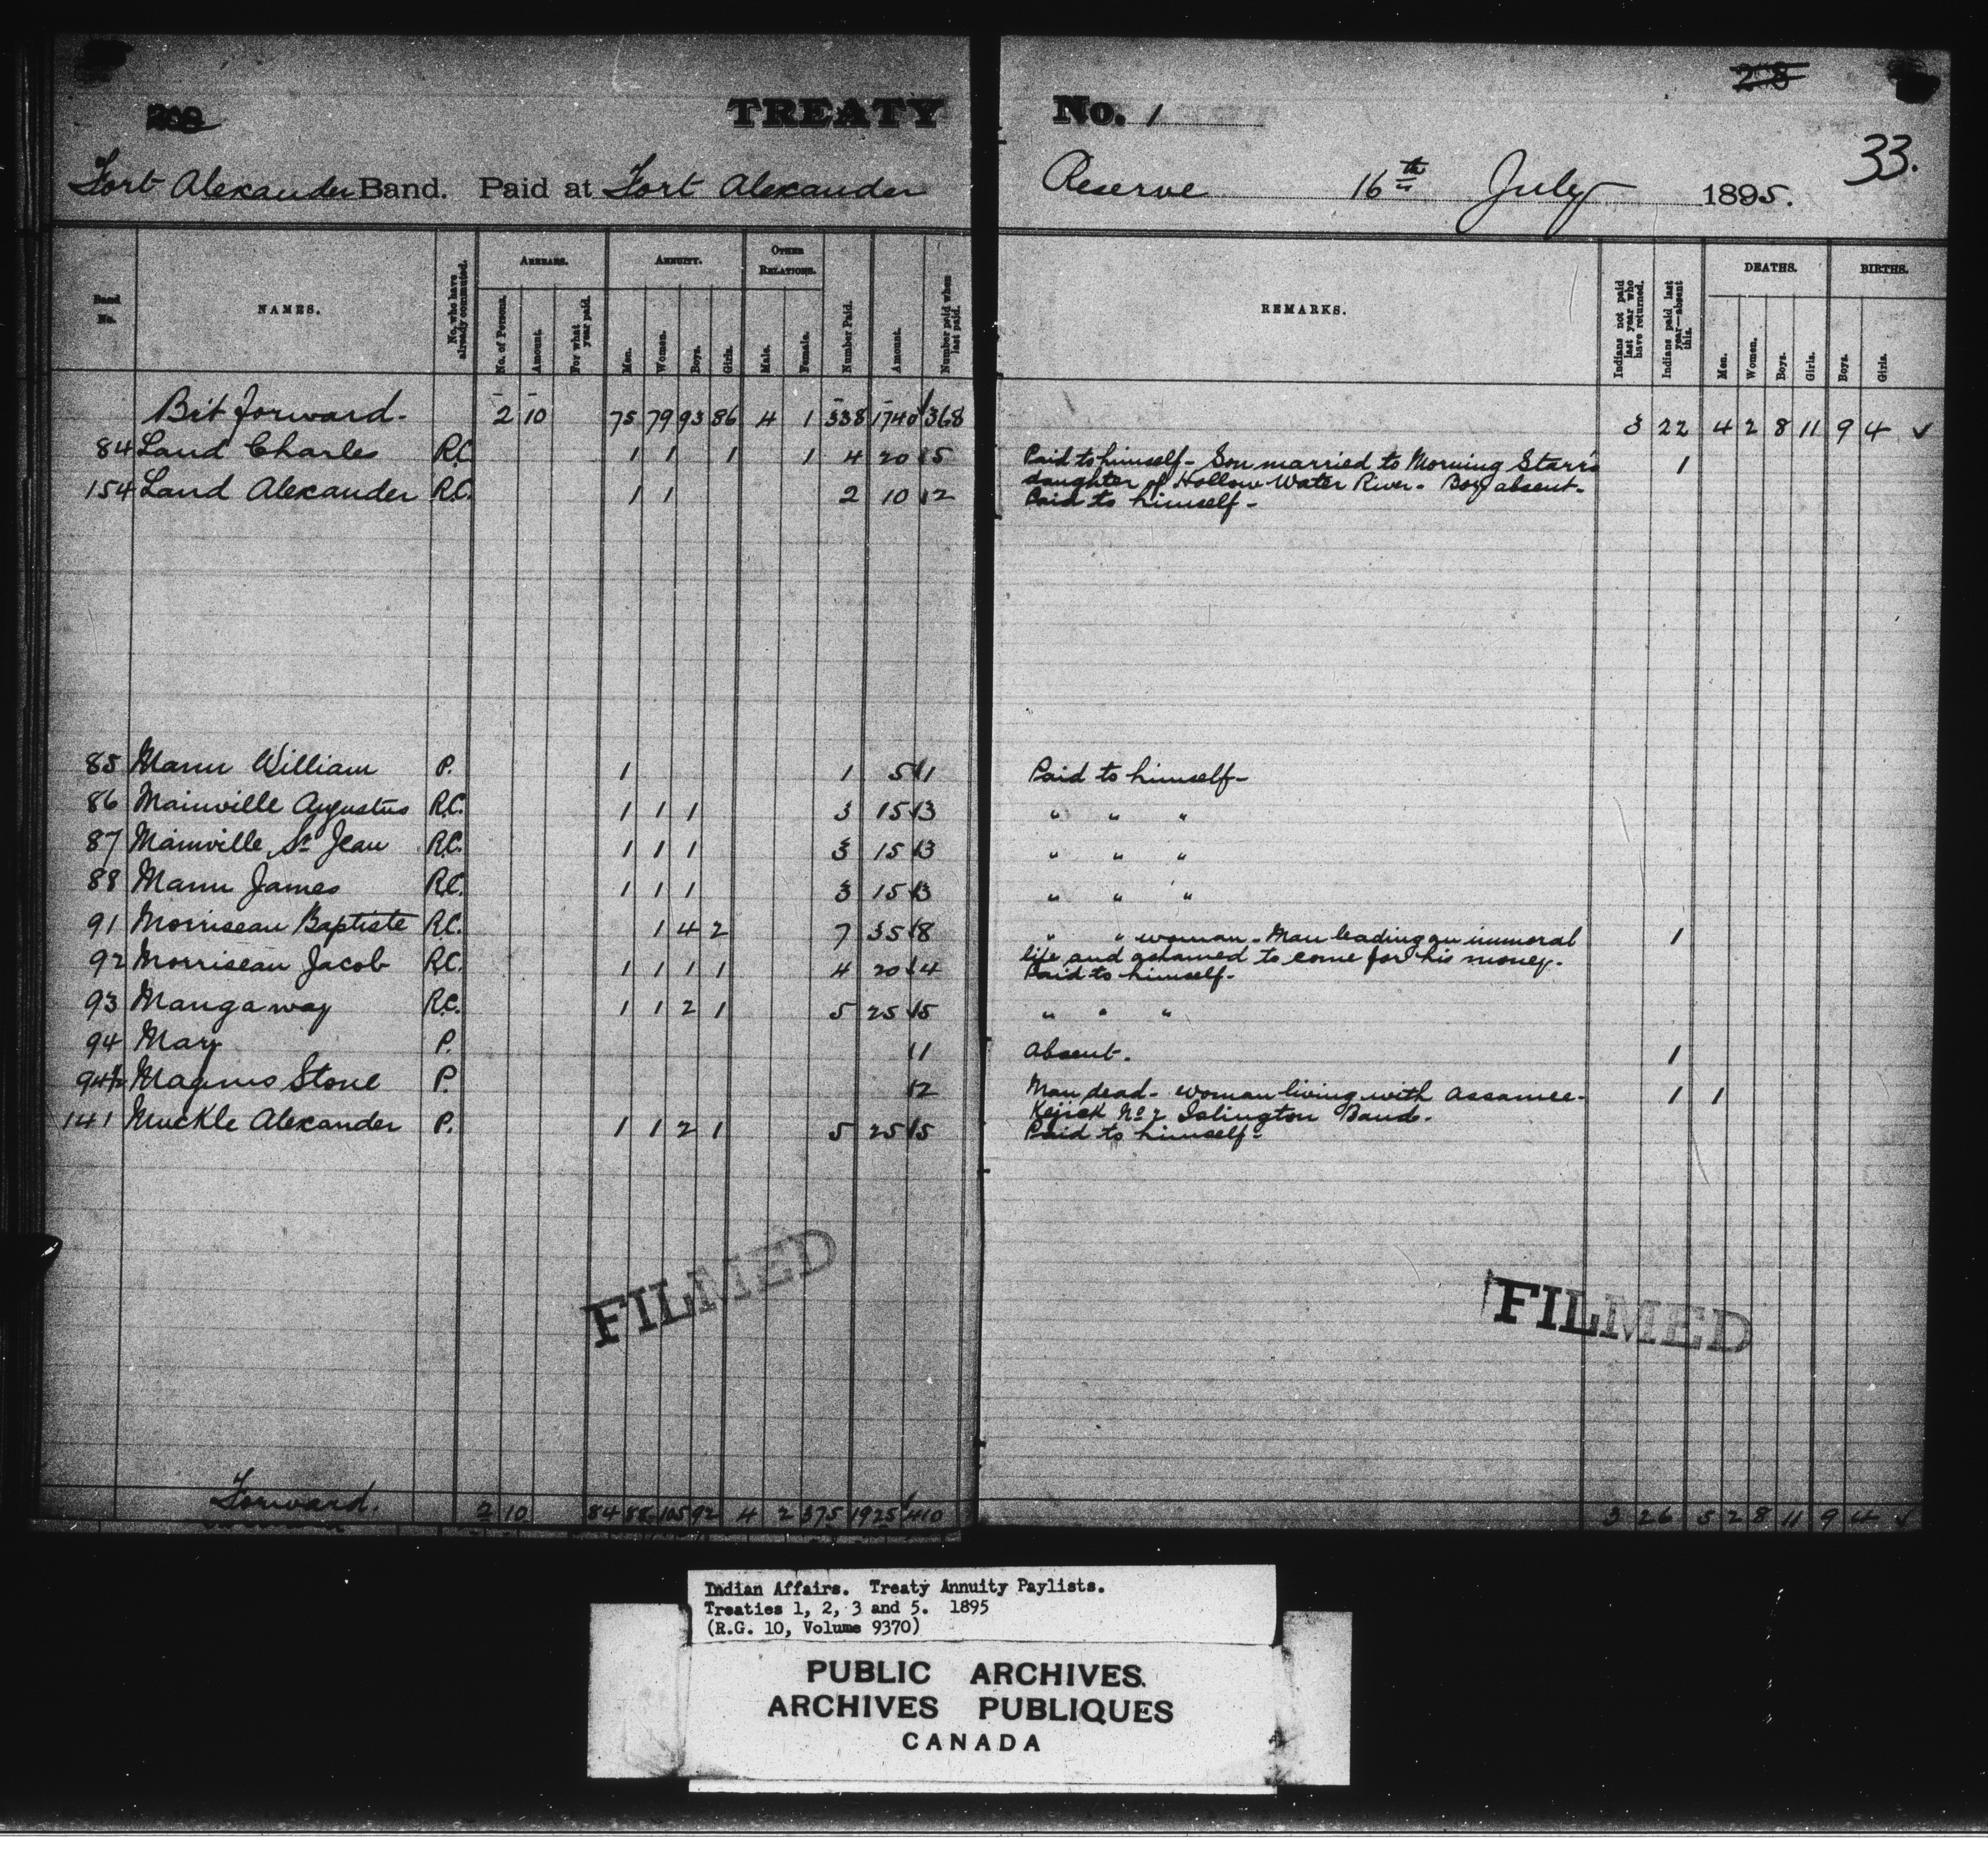 208 TREATY No. 1 218
33.
Fort Alexander Band. Paid at Fort Alexander Reserve 16th July 1895.
Band No. NAMES. No. who have already commuted. ARREARS. No. of Persons. Amount. For what year paid. ANNUITY. Men. Women. Boys. Girls. OTHER RELATIONS. Male. Female. Number Paid. Amount. Number paid when last paid. REMARKS. Indians not paid last year who have returned. Indians paid last year—absent this. DEATHS. Men. Women. Boys. Girls. BIRTHS. Boys. Girls.
Bt forward. 2 10 75 79 93 86 4 1 338 1740 368 3 22 4 2 8 11 9 4 ✓
84 Land Charles R.C. 1 1 1 1 4 20 5 Paid to himself - Son married to Morning Starr's 1
daughter of Hollow Water River. Boy absent.
154 Land Alexander R.C. 1 1 2 10 2 Paid to himself -
85 Mann William P. 1 1 5 1 Paid to himself -
86 Mainville Augustus R.C. 1 1 1 3 15 3 " " "
87 Mainville St Jean R.C. 1 1 1 3 15 3 " " "
88 Mann James R.C. 1 1 1 3 15 3 " " "
91 Morriseau Baptiste R.C. 1 4 2 7 35 8 " " woman - Man leading an immoral 1
life and ashamed to come for his money.
92 Morriseau Jacob R.C. 1 1 1 1 4 20 4 Paid to himself.
93 Mangaway R.C. 1 1 2 1 5 25 5 " " "
94 Mary P. 1 Absent. 1
94½ Magnus Stone P. 2 Man dead - woman living with Assamee- 1 1
Kejick No 2 Islington Band.
141 Muckle Alexander P. 1 1 2 1 5 25 5 Paid to himself -
FILMED FILMED
Forward. 2 10 84 88 105 92 4 2 375 1925 410 3 26 5 2 8 11 9 4 ✓
Indian Affairs. Treaty Annuity Paylists.
Treaties 1, 2, 3 and 5. 1895
(R.G. 10, Volume 9370)
PUBLIC ARCHIVES
ARCHIVES PUBLIQUES
CANADA